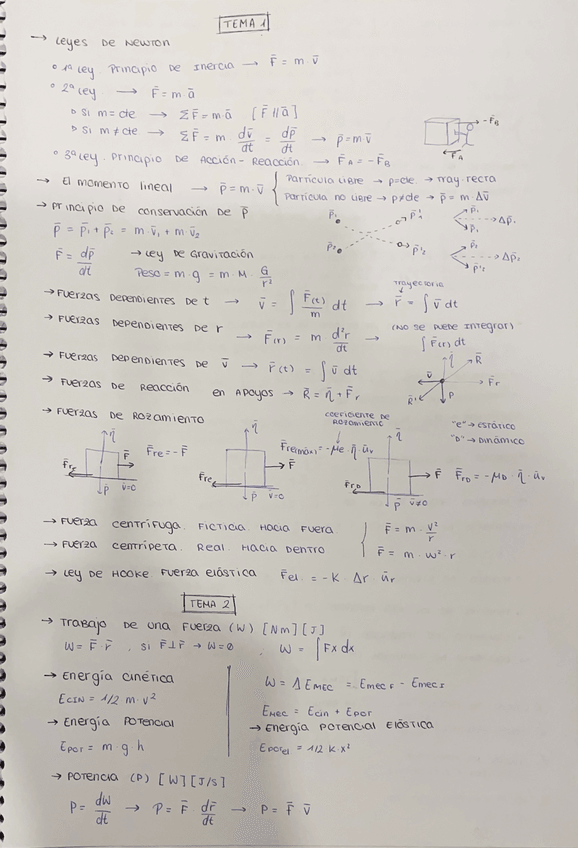 TEMA 1
→ Leyes de Newton
º 1ª Ley. Principio de Inercia → F̄ = m·v̄
º 2ª Ley → F̄ = m·ā
▹ Si m = cte → ΣF̄ = m·ā [F̄ // ā]
▹ Si m ≠ cte → ΣF̄ = m · dv̄/dt = dp̄/dt → p̄ = m·v̄
-F̄B
F̄A
º 3ª Ley. Principio de Acción-Reacción → F̄A = -F̄B
→ El momento lineal → p̄ = m·v̄ { Partícula libre → p=cte. → tray. recta
Partícula no libre → p≠cte → p̄ = m·Δv̄
→ Principio de conservación de p̄
p̄ = p̄1 + p̄2 = m·v̄1 + m·v̄2
p̄1 p̄'1 p̄1 Δp̄1
p̄2 p̄'2 p̄2 p̄'2 Δp̄2
F̄ = dp̄/dt → Ley de Gravitación
Peso = m·g = m·M·G/r²
→ Fuerzas dependientes de t → v̄ = ∫ F̄(t)/m dt → r̄ = ∫ v̄ dt
trayectoria
→ Fuerzas dependientes de r → F̄(r) = m d²r/dt → ∫ F̄(r) dt
(No se puede integrar)
→ Fuerzas dependientes de v̄ → r̄(t) = ∫ v̄ dt
→ Fuerzas de Reacción en Apoyos → R̄ = η̄ + F̄r
η̄ R̄ v̄ F̄r R̄' P
→ Fuerzas de Rozamiento
coeficiente de rozamiento
"e" → estático
"D" → Dinámico
η̄ F̄ F̄re p̄ v̄=0 F̄re = -F̄
η̄ F̄ F̄re p̄ v̄=0 F̄re(máx) = -μe·η̄·ūv
η̄ F̄ F̄rD p̄ v̄≠0 F̄rD = -μD·η̄·ūv
→ Fuerza centrífuga. Ficticia. Hacia fuera. } F̄ = m·v²/r
→ Fuerza centrípeta. Real. Hacia dentro } F̄ = m·w²·r
→ Ley de Hooke. Fuerza elástica. F̄el = -K·Δr ūr
TEMA 2
→ Trabajo de una fuerza (W) [Nm] [J]
W = F̄·r̄ , si F̄⊥r̄ → W=0 , W = ∫ Fx dx
→ Energía cinética
Ecin = 1/2·m·v²
→ Energía Potencial
Epot = m·g·h
W = Δ Emec = Emec F - Emec I
Emec = Ecin + Epot
→ Energía Potencial Elástica
Epotel = 1/2·k·x²
→ Potencia (P) [W] [J/s]
P = dW/dt → P = F̄ dr̄/dt → P = F̄ v̄